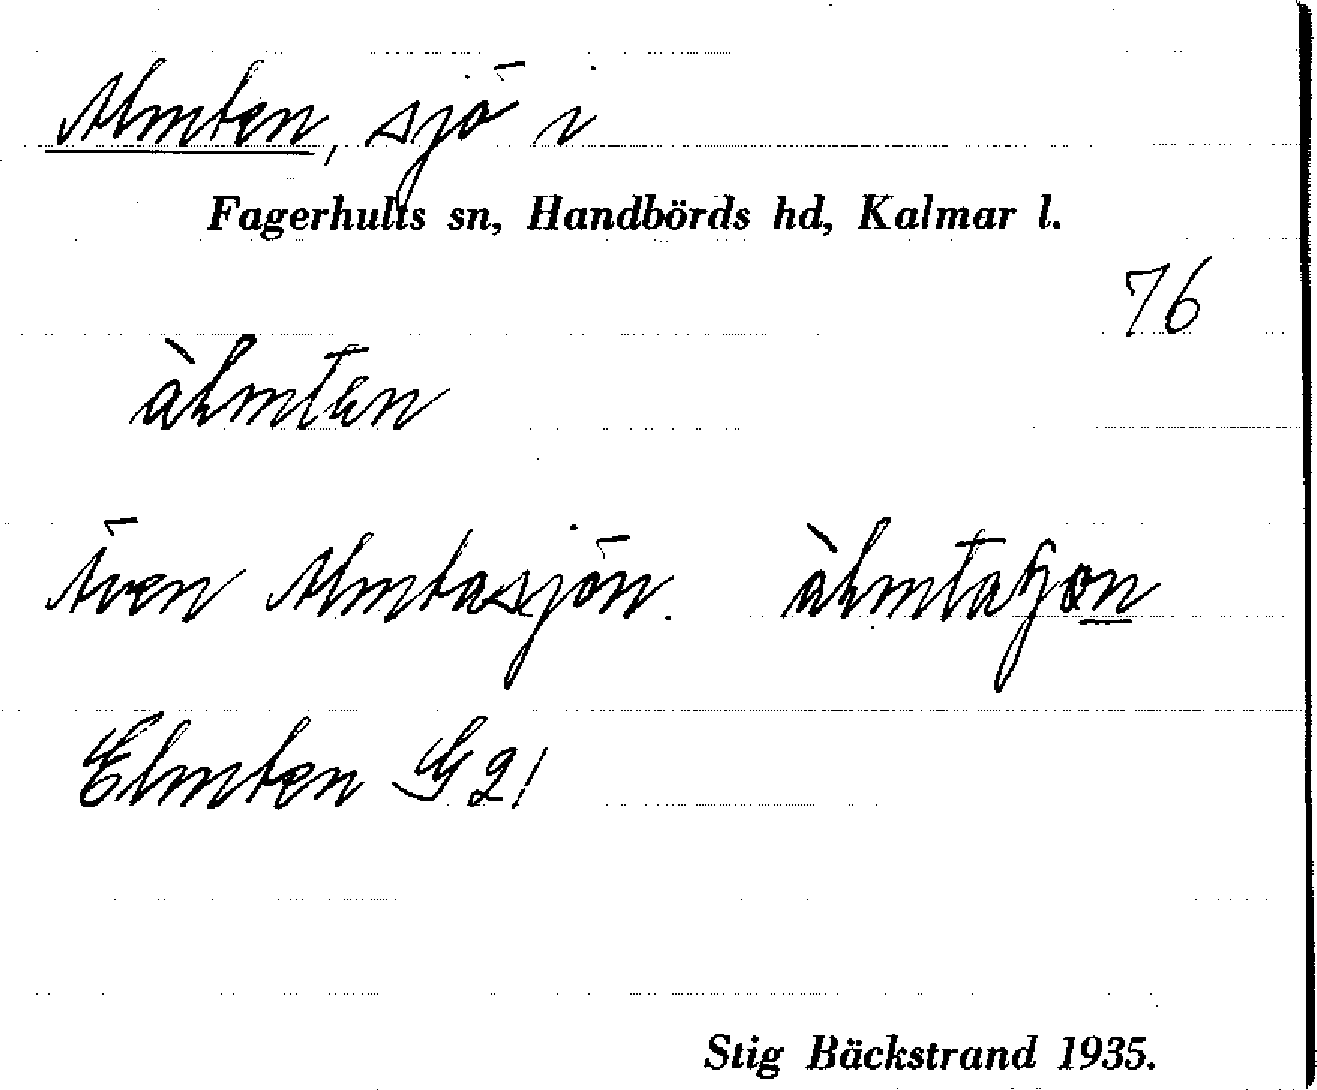 Almten, sjö i
Fagerhults sn, Handbörds hd, Kalmar l.
76
àlmten
Även Almtasjön.
Elmten G 21
Stig Bäckstrand 1935.